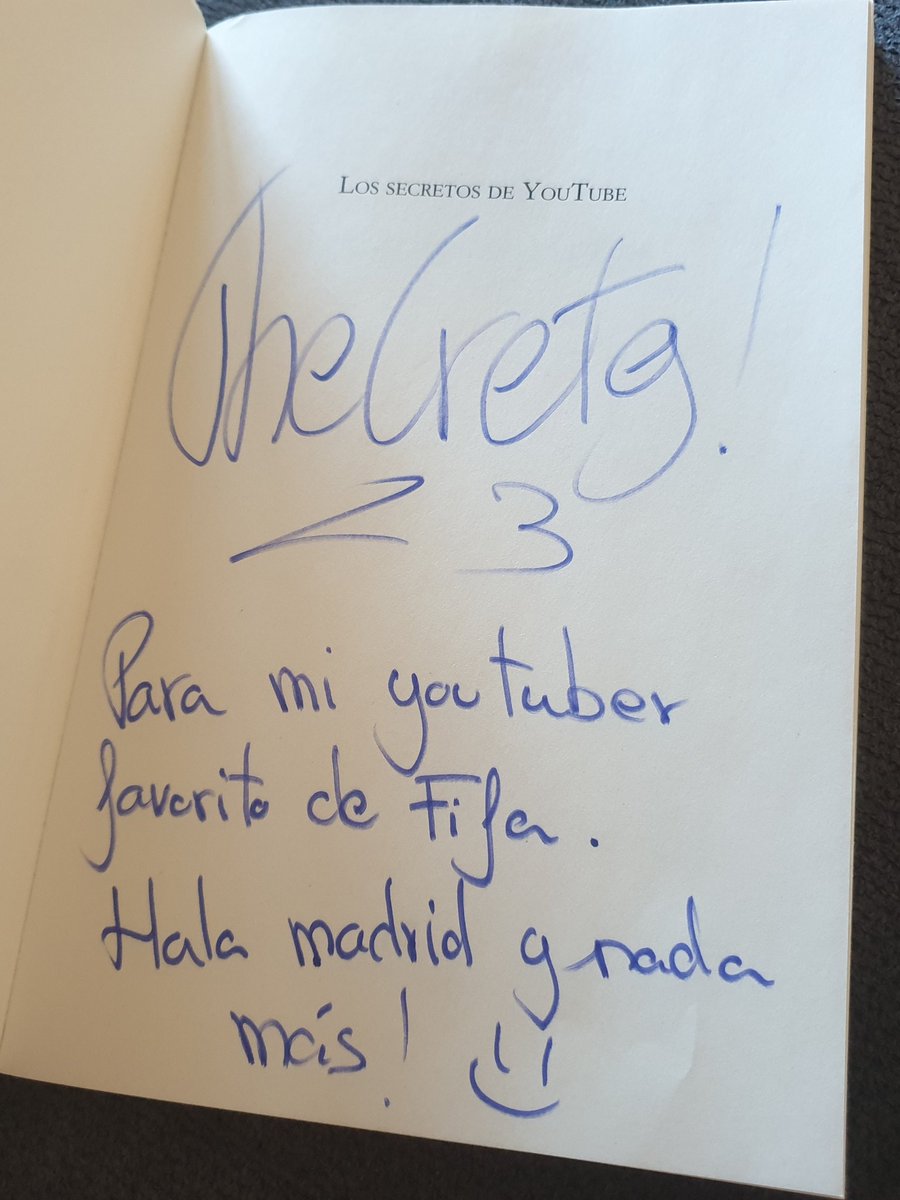 LOS SECRETOS DE YOUTUBE
TheCretg!
<3
Para mi youtuber
favorito de Fifa.
Hala madrid y nada
más! :)